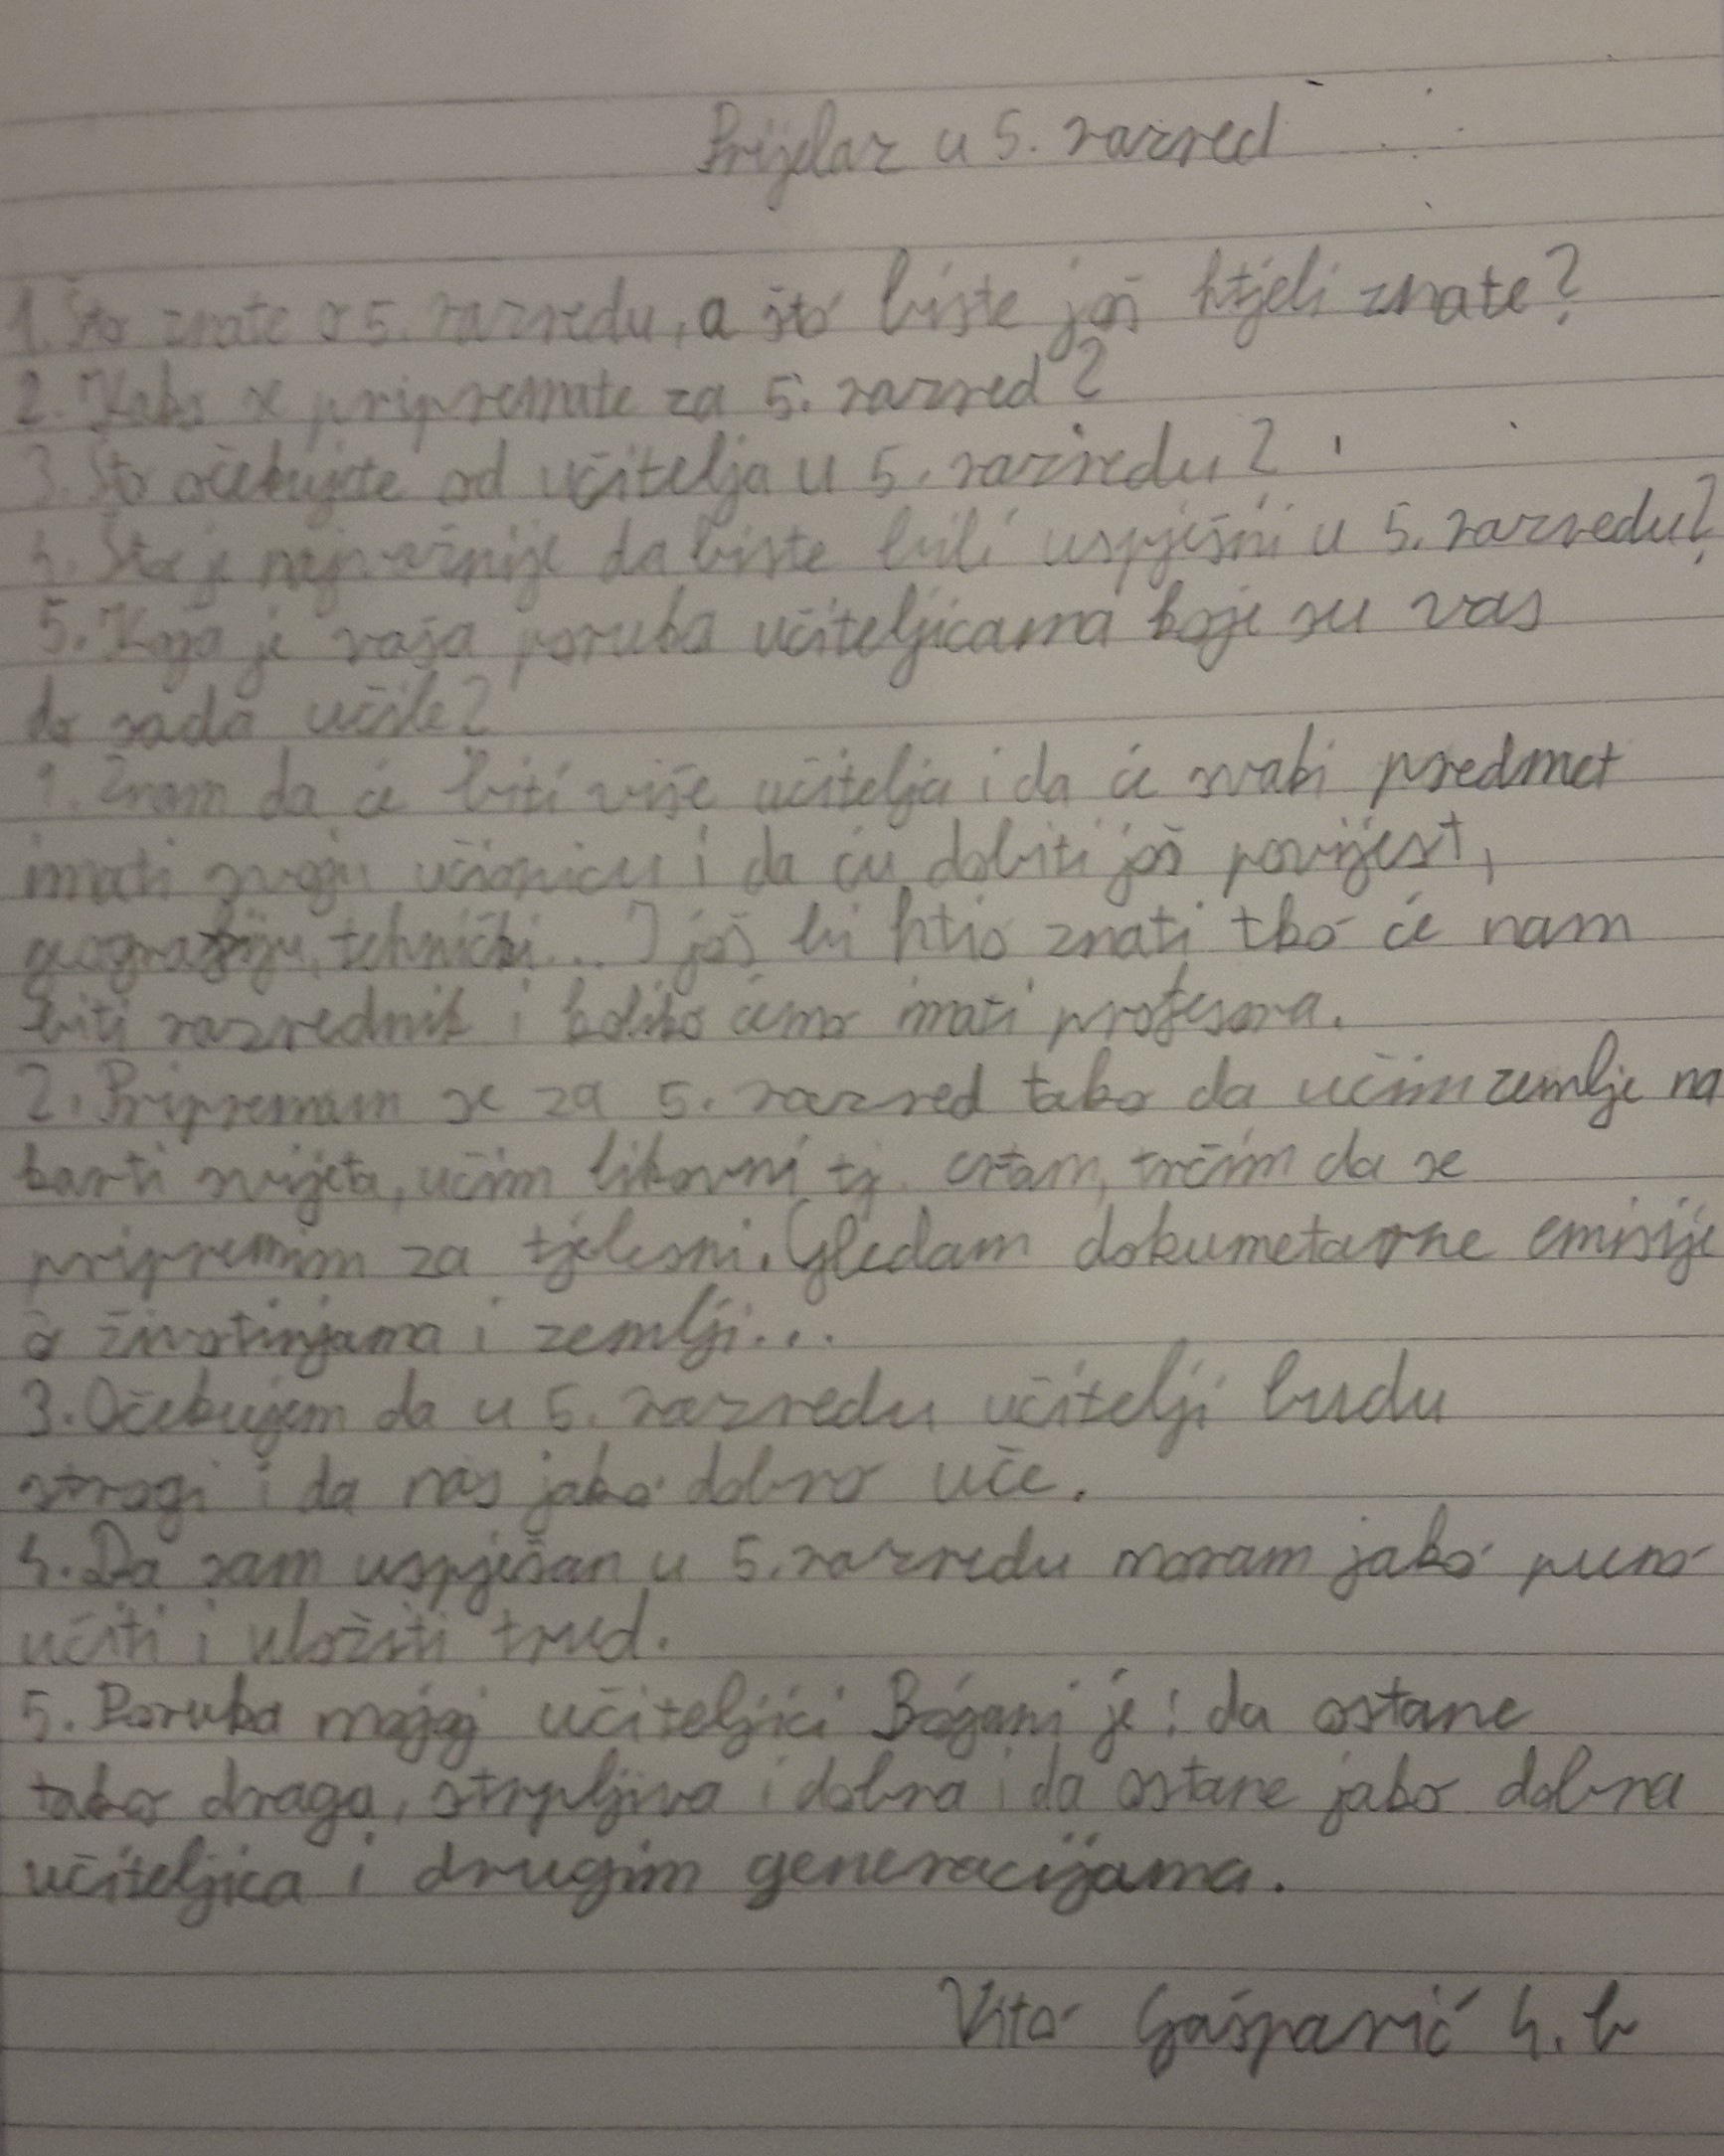 Prijelaz u 5. razred
1. Što znate o 5. razredu, a što biste još htjeli znate?
2. Kako se pripremate za 5. razred?
3. Što očekujete od učitelja u 5. razredu?
4. Što je najvažnije da biste bili uspješni u 5. razredu?
5. Koja je vaša poruka učiteljicama koje su vas
do sada učile?
1. Znam da će biti više učitelja i da će svaki predmet
imati svoju učionicu i da ću dobiti još povijest,
geografiju, tehnički... I još bi htio znati tko će nam
biti razrednik i koliko ćemo imati profesora.
2. Pripremam se za 5. razred tako da učim zemlje na
karti svijeta, učim likovni tj. crtam, trčim da se
pripremim za tjelesni. Gledam dokumetarne emisije
o životinjama i zemlji...
3. Očekujem da u 5. razredu učitelji budu
strogi i da nas jako dobro uče.
4. Da sam uspješan u 5. razredu moram jako puno
učiti i uložiti trud.
5. Poruka mojoj učiteljici Bógani je: da ostane
tako draga, strpljiva i dobra i da ostane jako dobra
učiteljica i drugim generacijama.
Vito Gašparić 4. b